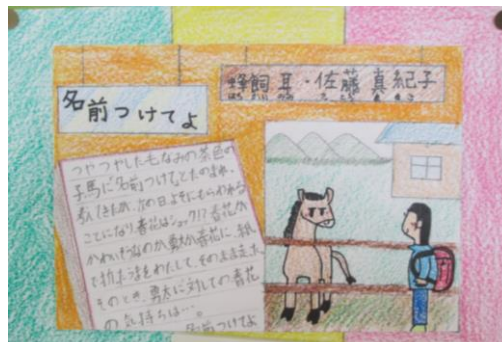 名前つけてよ
蜂飼耳・佐藤真紀子
はち かい みみ さ とう ま き こ
つやつやした毛なみの茶色の
子馬に名前つけてとたのまれ、
考えてきたが、次の日よそにもらわれる
ことになり、春花はショック!?春花が
かわいそうなのか勇太が春花に、紙
で折った馬をわたして、そのまま走
そのとき、勇太に対しての春花
の気持ちは…。
名前つけてよ